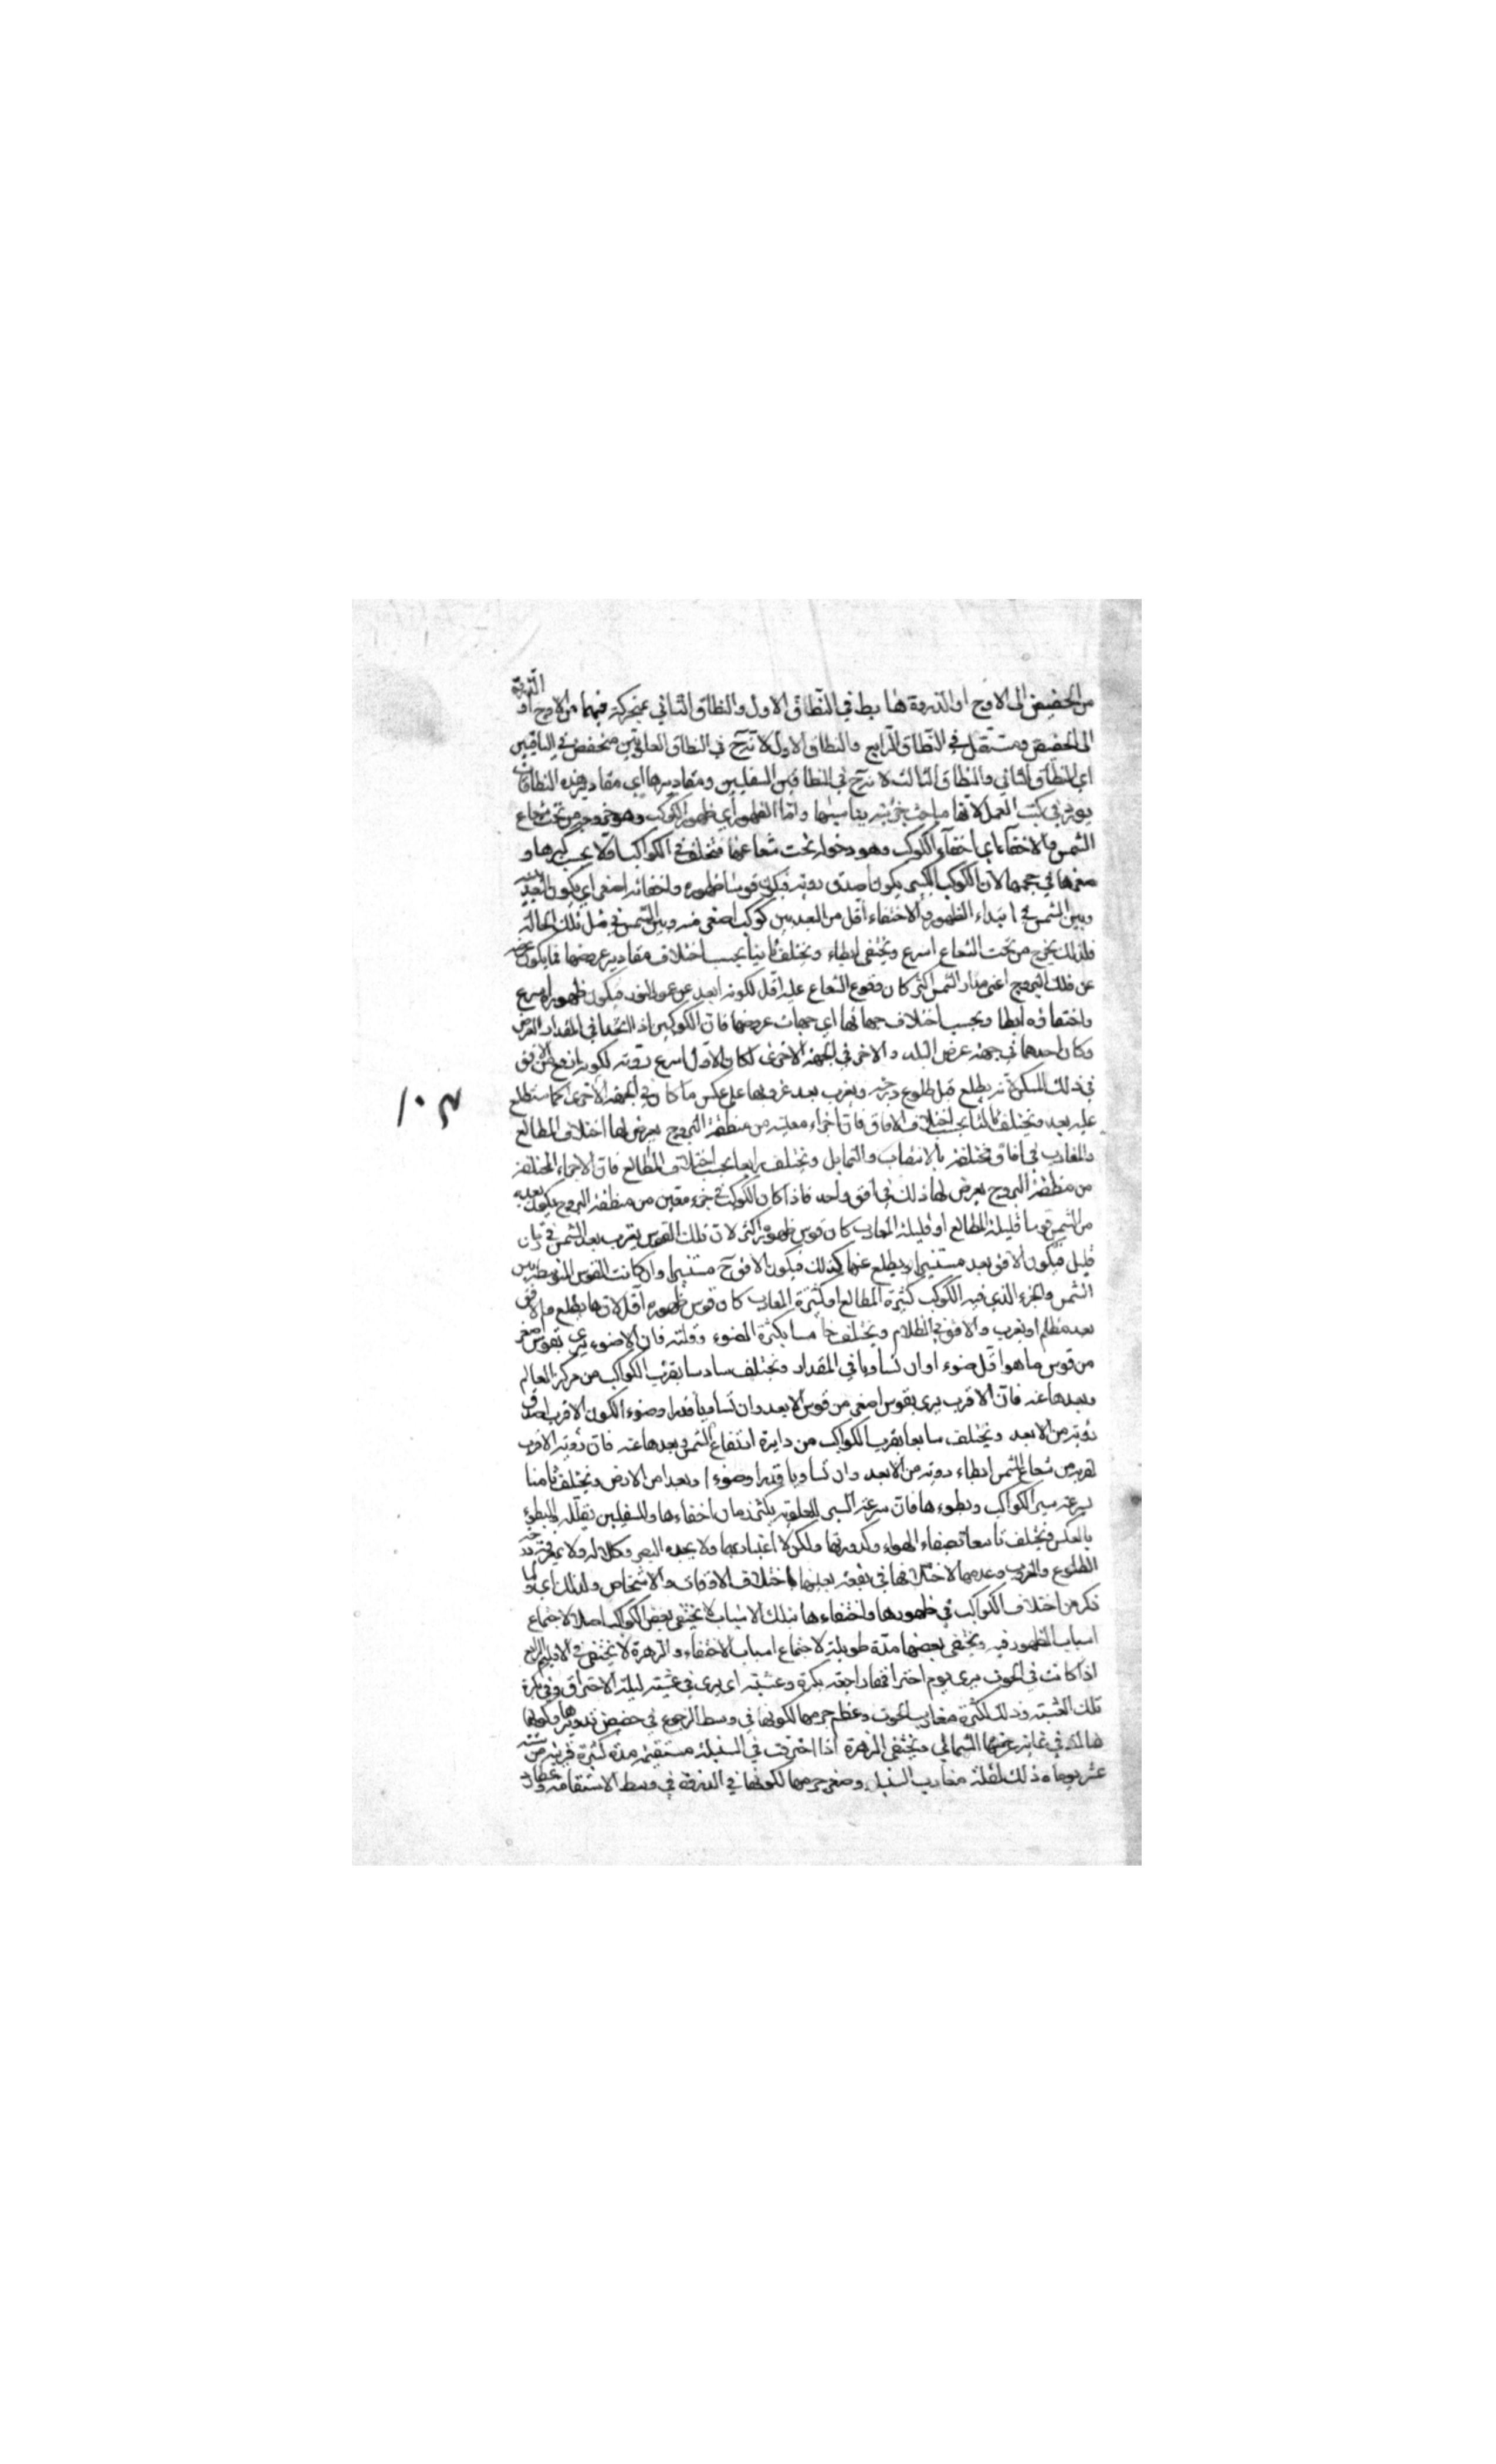 من الحضيض الى الاوج او الذروة هابط في النطاق الاول والنطاق الثاني متحركة فيهما من الاوج او الذروة
الى الحضيض ومستقل في النطاق الرابع والنطاق الاول لانه ح في النطاق العلويين منخفض في الباقيين
اي النطاق الثاني والنطاق الثالث لانه ح في النطاقين السفليين ومقاديرها اي مقادير هذه النطاقات
يورد في كتب العمل لانها مباحث جزئية يناسبها واما الظهور اي ظهور الكوكب وهو خروجه من تحت شعاع
الشمس والاختفاء اي اختفاء الكوكب وهو دخوله تحت شعاعها فتختلف في الكواكب اولا بحسب كبرها و
صغرها في حجمها لان الكوكب الكبير يكون اصدق روية فيكون قوس ظهوره واختفائه اصغر اي يكون البعد بينه
وبين الشمس في ابتداء الظهور والاختفاء اقل من البعد بين كوكب اصغر منه وبين الشمس في مثل تلك الحالة
فلذلك يخرج من تحت الشعاع اسرع ويختفي ابطاء ويختلف ثانيا بحسب اختلاف مقادير عروضها فما يكون عرضه
عن فلك البروج اعني مدار الشمس اكثر كان وقوع الشعاع عليه اقل لكونه ابعد عن عمود النور فيكون ظهوره اسرع
واختفاؤه ابطا وبحسب اختلاف جهاتها اي جهات عروضها فان الكوكبين اذا اتحدا في المقدار العرض
وكان احدهما في جهة عرض البلد والاخر في الجهة الاخرى لكان الاول اسرع روية لكونه ارفع من الافق
في ذلك المسكن لانه يطلع قبل طلوع درجته ويغرب بعد غروبها على عكس ما كان في الجهة الاخرى كما ستطلع
عليه بعد ويختلف ثالثا بحسب اختلاف الافاق فان اجزاء معينة من منطقة البروج يعرض لها اختلاف المطالع
والمغارب في افاق مختلفة بالانتصاب والتمايل ويختلف رابعا بحسب اختلاف المطالع فان الاجزاء المختلفة
من منطقة البروج يعرض لها ذلك في افق واحد فاذا كان الكوكب في جزء معين من منطقة البروج يكون بعده
من الشمس قوسا قليلة المطالع او قليلة المغارب كان قوس ظهوره اكثر لان تلك القوس يغرب بعد الشمس في زمان
قليل فيكون الافق بعد مستنيرا ويطلع عنها كذلك فيكون الافق ح مستنيرا وان كانت القوس المتوسطة بين
الشمس والجزء الذي فيه الكوكب كثيرة المطالع او كثيرة المغارب كان قوس ظهوره اقل لانها يطلع والافق
بعد مظلم او يغرب والافق في الظلام ويختلف خامسا بكثرة الضوء وقلته فان الاضوء يرى بقوس اصغر
من قوس ما هو اقل ضوء او ان تساويا في المقدار ويختلف سادسا بقرب الكواكب من مركز العالم
وبعدها عنه فان الاقرب يرى بقوس اصغر من قوس الابعد وان تساويا قدرا وضوء الكون الاقرب اصدق
رؤية من الابعد ويختلف سابعا بقرب الكواكب من دايرة ارتفاع الشمس وبعدها عنه فان رؤية الاقرب
لقربه من شعاع الشمس ابطاء روية من الابعد وان تساويا قدرا وضوءا وبعدا من الارض ويختلف ثامنا
بسرعة سير الكواكب وبطوءها فان سرعة السير للعلوية يكثر زمان اخفاءها وللسفليين يقلله والبطوء
بالعكس ويختلف تاسعا بصفاء الهواء وكدورتها ولكن لا اعتبار بهما ولا بحدة البصر وكلاله ولا بمعرفة جهة
الطلوع والغروب وعدمها لاختلافها في بقعة بعينها باختلاف الاوقات والاشخاص ولذلك اي ولما
ذكر من اختلاف الكواكب في ظهورها واختفاءها بتلك الاسباب لا يختفي بعض الكواكب اصلا لاجتماع
اسباب الظهور فيه ويختفي بعضها مدة طويلة لاجتماع اسباب الاختفاء والزهرة لا يختفي في الاقليم الرابع
اذا كانت في الحوت يرى يوم احتراقها راجعة بكرة وعشية اي يرى في عشية ليلة الاحتراق وفي بكرة
تلك العشية وذلك لكثرة مغارب الحوت وعظم جرمها لكونها في وسط الرجوع في حضيض تدويرها ولكونها
هنالك في غاية عرضها الشمالي ويختفي الزهرة اذا احترقت في السنبلة مستقيمة مدة كثيرة قريبة من ستة
عشر يوما وذلك لقلة مغارب السنبلة وصغر جرمها لكونها في الذروة في وسط الاستقامة وعطارد
١٠٣